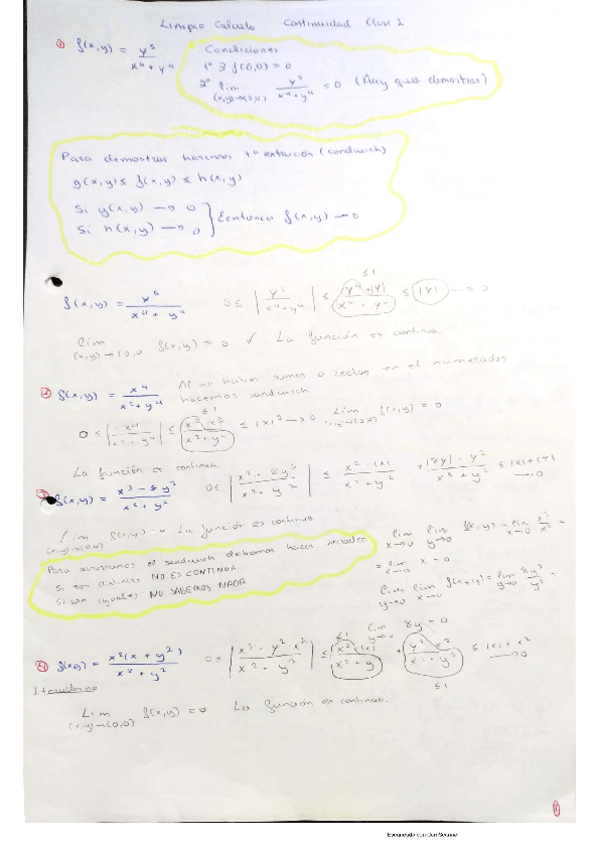 Limpio Calculo Continuidad Clase 1
1) f(x,y) = y⁵ / (x⁴ + y⁴)
Condiciones
1º ∃ f(0,0) = 0
2º lim (x,y)→(0,0) y⁵ / (x⁴ + y⁴) = 0 (Hay que demostrar)
Para demostrar hacemos (sandwich)
g(x,y) ≤ f(x,y) ≤ h(x,y)
Si g(x,y) → 0
Si h(x,y) → 0 } Entonces f(x,y) → 0
f(x,y) = y⁵ / (x⁴ + y⁴) 0 ≤ | y⁵ / (x⁴ + y⁴) | ≤ y⁴ · |y| / (x⁴ + y⁴) ≤ |y| → 0
≤ 1
lim (x,y)→(0,0 f(x,y) = 0 ✓ La función es continua.
2) f(x,y) = x⁴ / (x² + y⁴) Al no haber sumas o restas en el numerador
hacemos sandwich
≤ 1
0 ≤ | x⁴ / (x² + y⁴) | ≤ x² · x² / (x² + y⁴) ≤ |x|² → 0 lim f(x,y) = 0
La función es continua.
f(x,y) = x³ - 8y³ / (x² + y²) 0 ≤ | x³ - 8y³ / (x² + y²) | ≤ x² · |x| / (x² + y²) + |8y| · y² / (x² + y²) ≤ |x| + |y| → 0
La función es continua
Para asegurarnos el sandwich debemos hacer
Si son distintos NO ES CONTINUA
Si son iguales NO SABEMOS NADA
lim x→0 lim y→0 f(x,y) = lim x→0 x³ / x² =
= lim x→0 x = 0
lim y→0 lim x→0 f(x,y) = lim y→0 8y³ / y² =
lim y→0 8y = 0
4) f(x,y) = x²(x + y²) / (x² + y²) 0 ≤ | x³ + y² · x² / (x² + y²) | ≤ x² · |x| / (x² + y²) + y² · x² / (x² + y²) ≤ |x| + x² → 0
≤ 1
≤ 1
Lim (x,y)→(0,0) f(x,y) = 0 La función es continua.
Escaneado con CamScanner